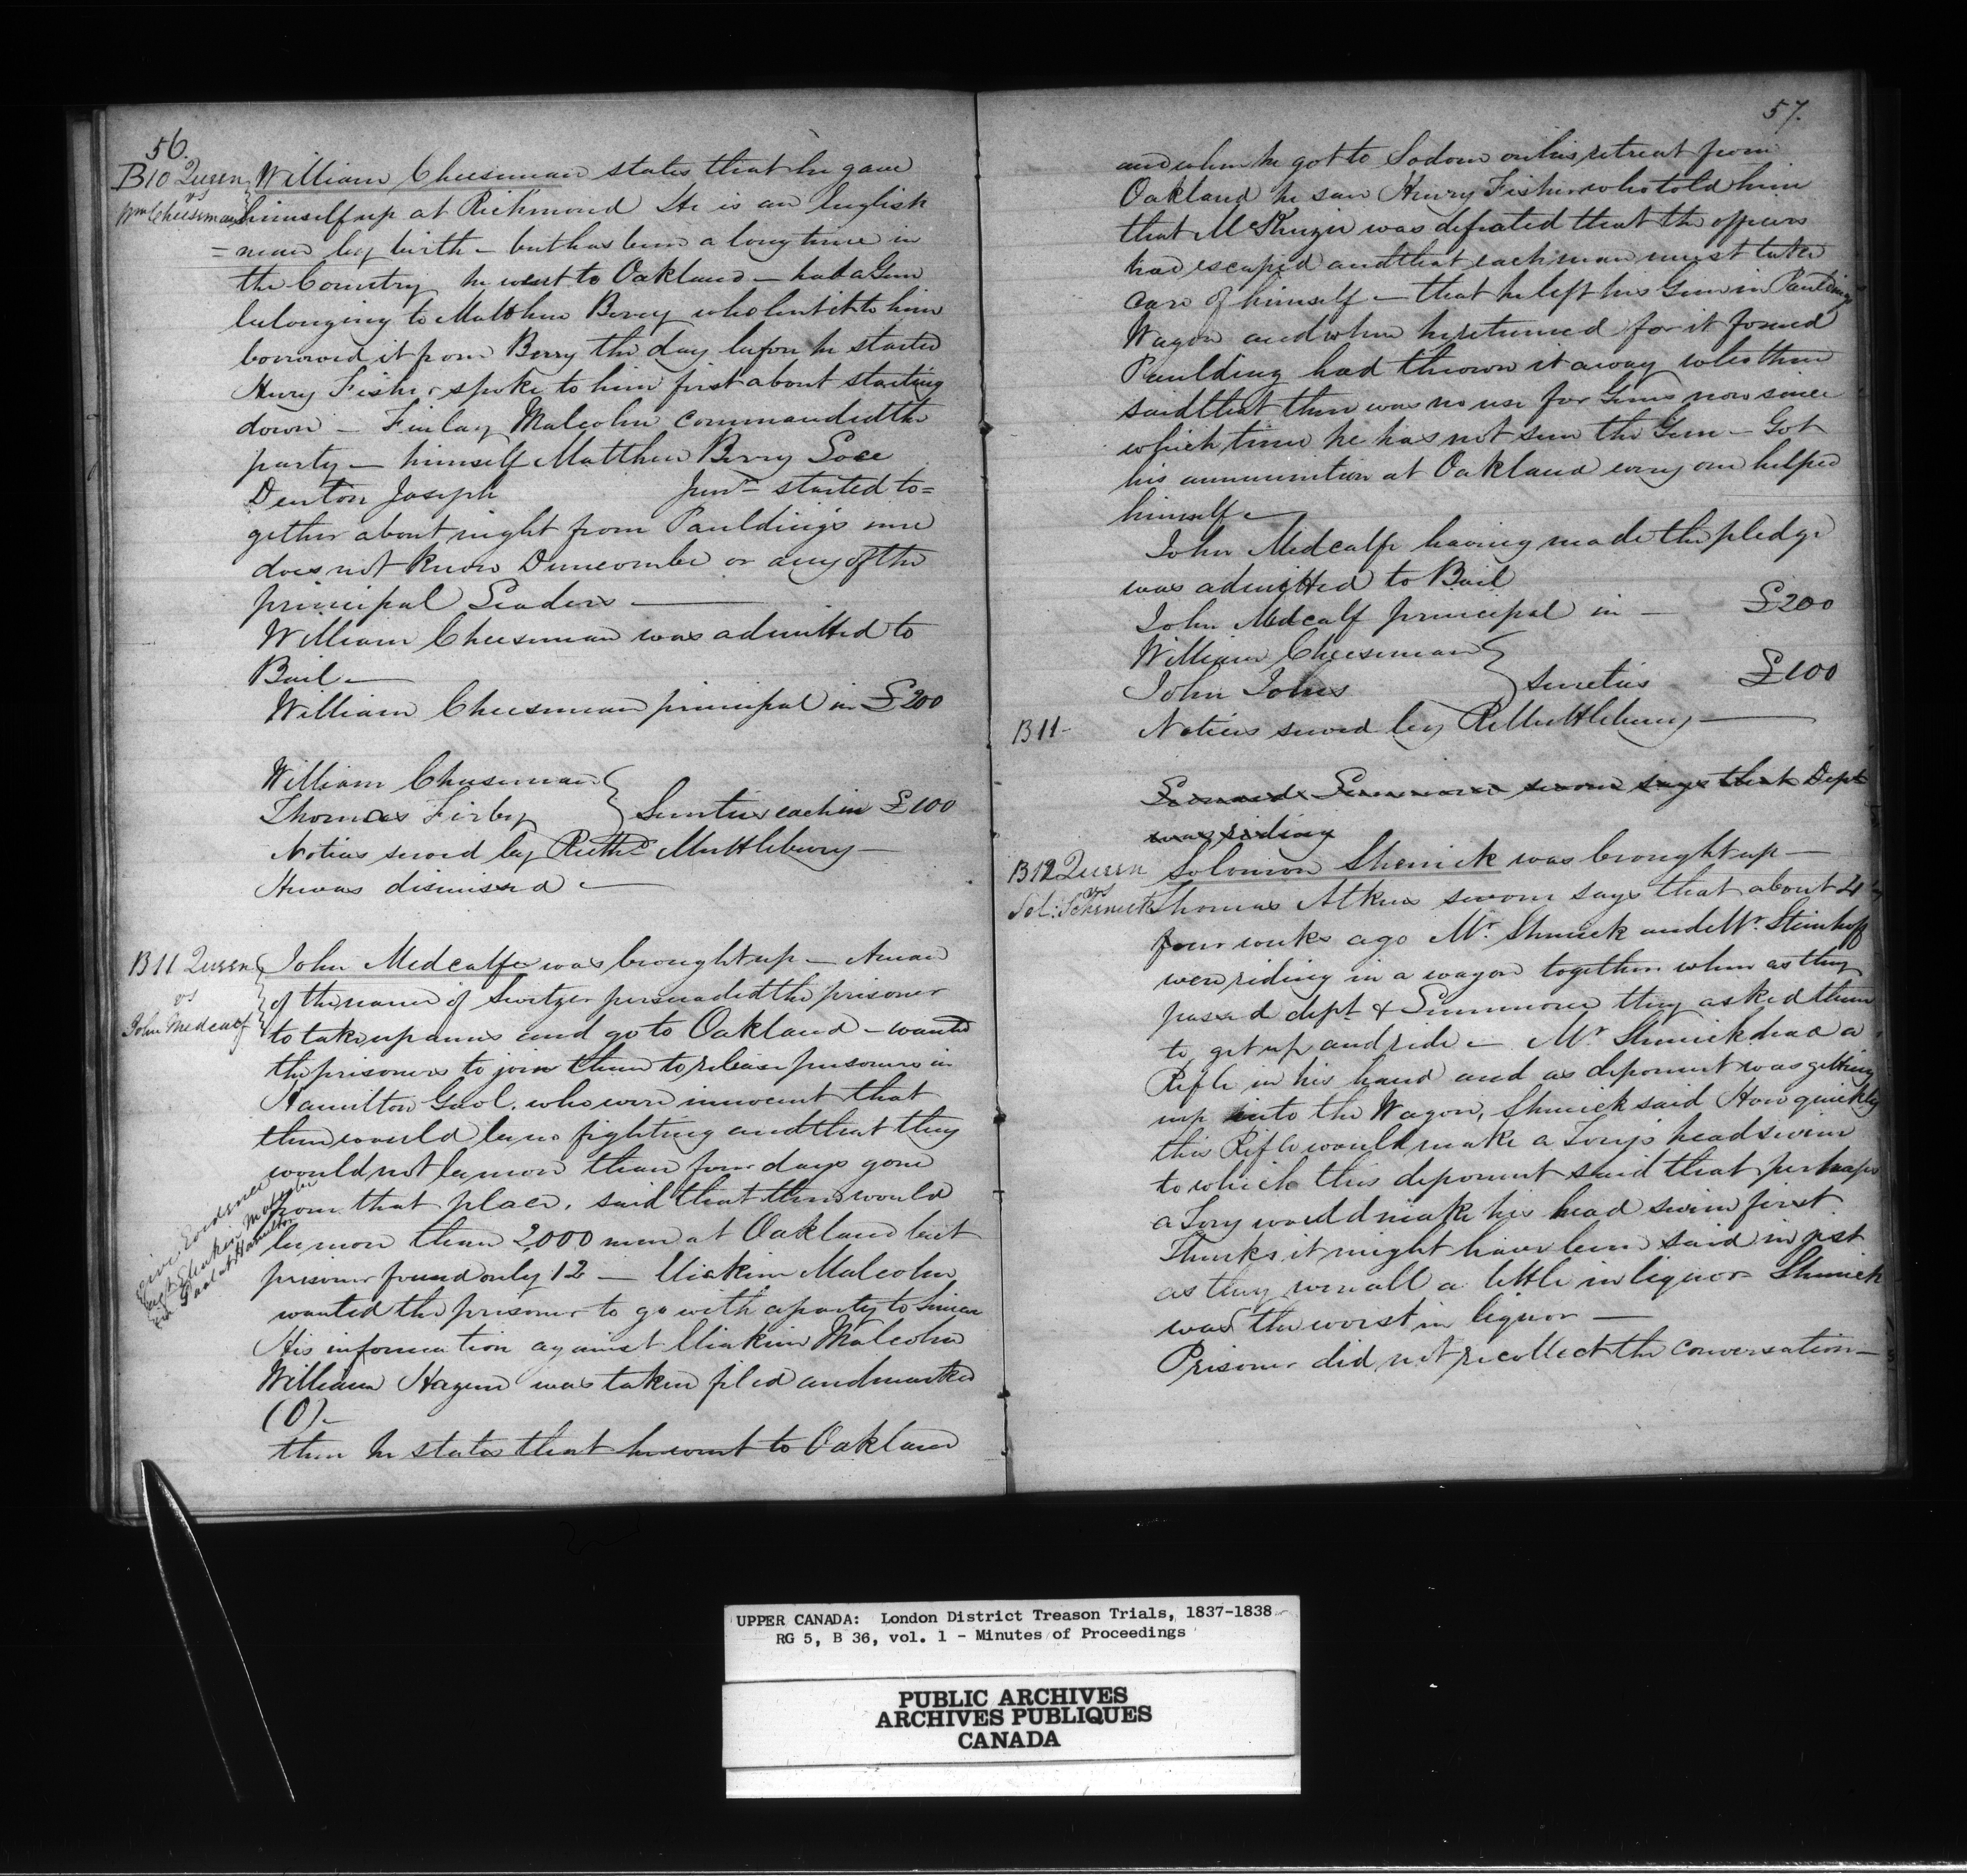 56.
B10 Queen
vs
Wm Cheesman
William Cheesman states that he gave
himself up at Richmond He is an English
=man by birth – but has been a long time in
the Country he went to Oakland – had a Gun
belonging to Matthew Berry who lent it to him
borrowed it from Berry the day before he started
Henry Fisher spoke to him first about starting
down – Finlay Malcolm commanded the
party – himself Matthew Berry
Denton Joseph Junr – started to=
gether about night from Pauldings Inn
does not know Duncombe or any of the
principal Leaders —
William Cheesman was admitted to
Bail —
William Cheesman principal in £200
William Cheesman
Thomas Firby } Sureties each in £100
Notices served by Muttlebury –
He was dismissed —
B11 Queen
vs
John Medcalf
John Medcalfe was brought up – A man
of the name of Switzer persuaded the prisoner
to take up arms and go to Oakland – wanted
the prisoners to join them to release prisoners in
Hamilton Gaol. who were innocent that
there would be no fighting and that they
would not be more than four days gone
from that place. said that there would
be more than 2000 men at Oakland but
prisoner found only 12 — Eliakim Malcolm
wanted the prisoner to go with a party to Simcoe
His information against Eliakim Malcolm
William Hagen was taken filed and marked
(O) –
then he states that he went to Oakland
Give Evidence
agst Eliakim Malcolm
in Gaol at Hamilton
57.
and when he got to Sodom on his retreat from
Oakland he saw Henry Fisher who told him
that McKenzie was defeated that the officers
had escaped and that each man must take
care of himself – that he left his Gun in Pauldings
Wagon and when he returned for it found
Paulding had thrown it away who then
said that there was no use for Guns now since
which time he has not seen the Gun – Got
his ammunition at Oakland every one helped
himself —
John Medcalfe having made the pledge
was admitted to Bail
John Medcalf principal in — £200
William Cheesman
John Johns } sureties £100
B11 – Notices served by R Muttlebury —
sworn says that Dept
was riding
B12 Queen
vs
Sol: Schenick
Solomon Shenick was brought up –
Thomas Atkins sworn says that about 4
four weeks ago Mr. Shenick and Mr. Steinhoff
were riding in a wagon together when as they
passed dept & Simmons they asked them
to get up and ride – Mr Shenick had a
Rifle in his hand and as deponent was getting
up into the Wagon, Shenick said How quickly
this Rifle would make a Tory's head swim
to which this deponent said that perhaps
a Tory would make his head swim first.
Thinks it might have been said in jest
as they were all a little in liquor – Shenick
was the worst in liquor —
Prisoner did not recollect the conversation –
UPPER CANADA: London District Treason Trials, 1837-1838
RG 5, B 36, vol. 1 - Minutes of Proceedings
PUBLIC ARCHIVES
ARCHIVES PUBLIQUES
CANADA